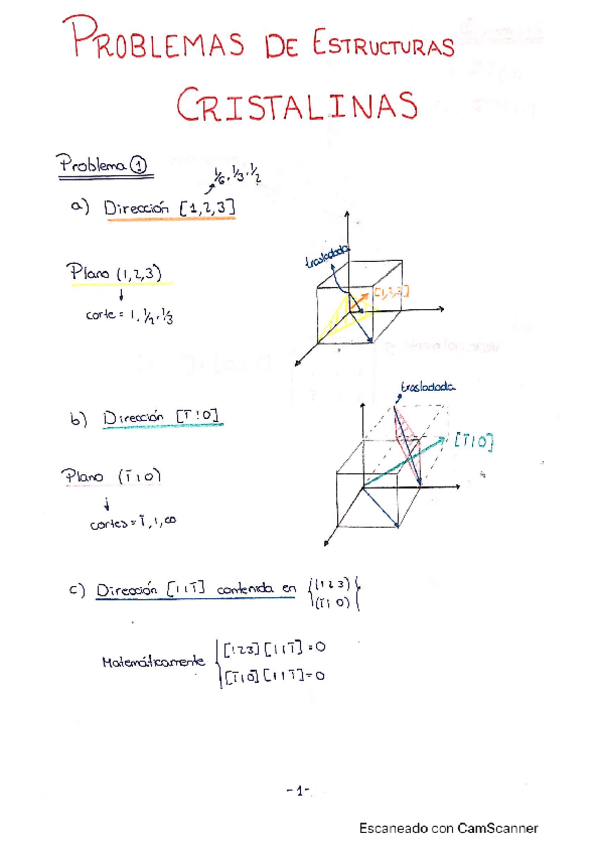 PROBLEMAS DE ESTRUCTURAS
CRISTALINAS
Problema ①
1/6, 1/3, 1/2
a) Dirección [1,2,3]
trasladada
Plano (1,2,3)
[1,2,3]
↓
corte = 1, 1/2, 1/3
trasladada
b) Dirección [1̅10]
[1̅10]
Plano (1̅10)
↓
cortes = 1̅, 1, ∞
c) Dirección [111̅] contenida en {(123)
(1̅10)
Matemáticamente {[123][111̅]=0
[1̅10][111̅]=0
-1-
Escaneado con CamScanner